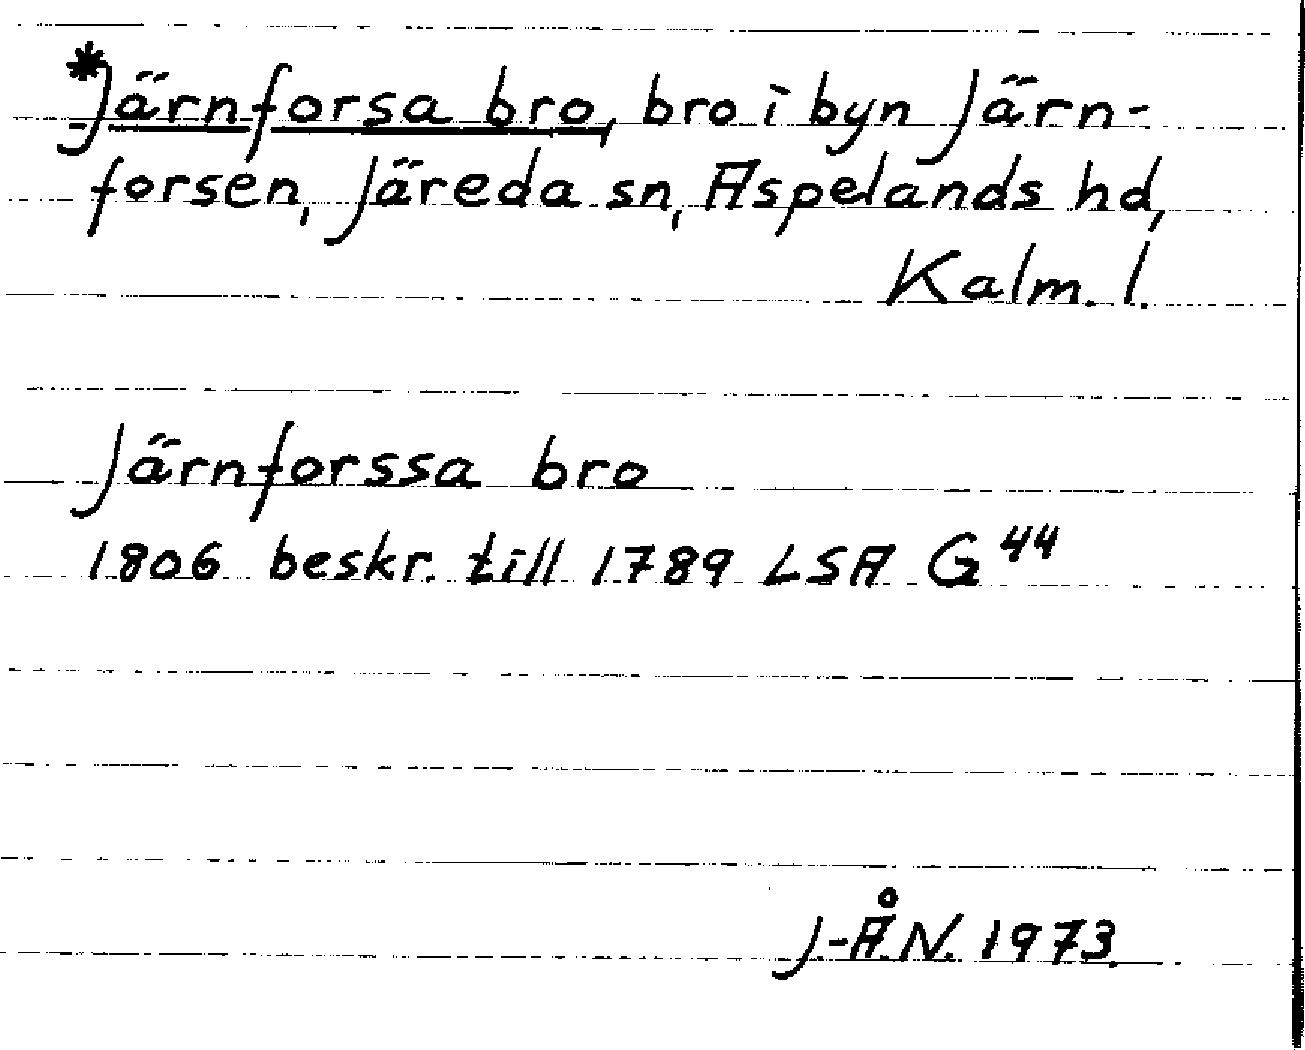 *Järnforsa bro, bro i byn Järn-
forsen, Järeda sn, Aspelands hd,
Kalm. l.
Järnforssa bro
1806 beskr. till 1789 LSA G 44
J.-Å.N. 1973